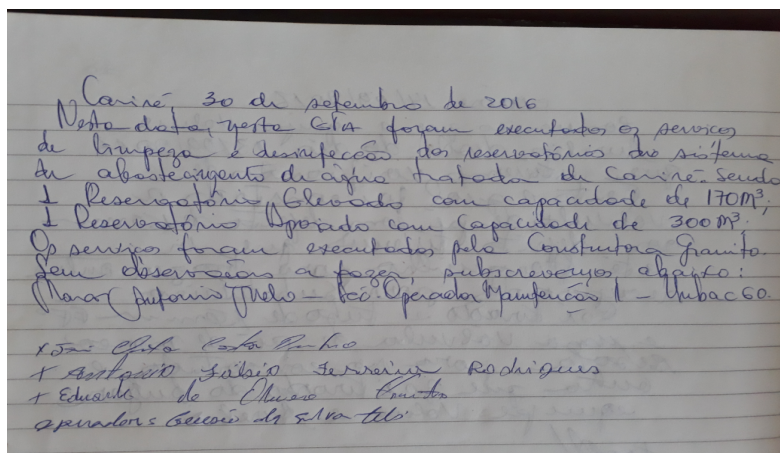 Cariré, 30 de setembro de 2016
Nesta data, nesta ETA foram executados os serviços
de limpeza e desinfecção dos reservatórios do sistema
de abastecimento de água tratada de Cariré. Sendo
1 Reservatório Elevado com capacidade de 170m³;
1 Reservatório Apoiado com Capacidade de 300m³.
Os serviços foram executados pela Construtora Granito.
Sem observações a fazer, subscrevemos abaixo:
Antonio Melo – Téc. Operador Manutenção 1 –
x José Costa
+ Antonio Fábio Ferreira Rodrigues
+ Eduardo de
operador: Gessão da Silva